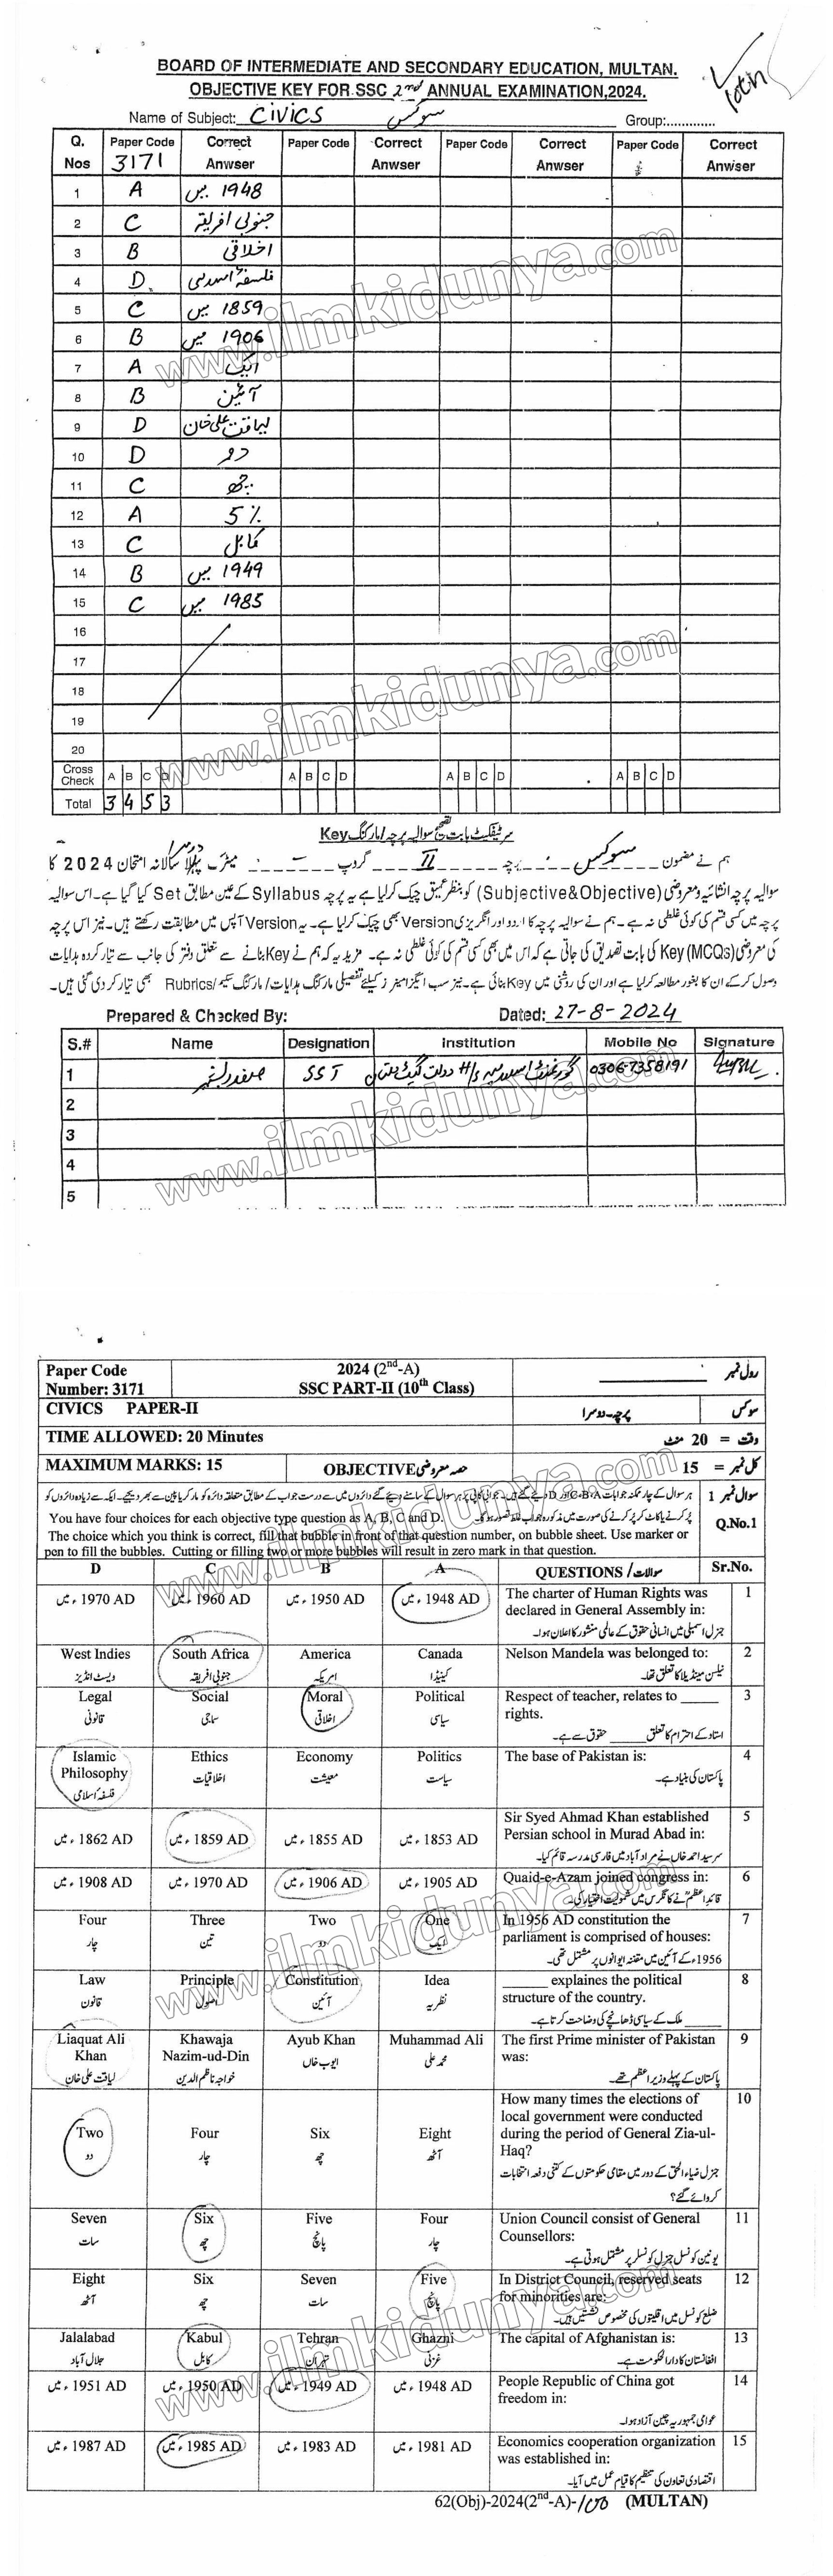 BOARD OF INTERMEDIATE AND SECONDARY EDUCATION, MULTAN.
OBJECTIVE KEY FOR SSC 2nd ANNUAL EXAMINATION,2024.
Name of Subject: CIVICS سوکس Group:.............
Q. Nos Paper Code 3171 Correct Anwser Paper Code Correct Anwser Paper Code Correct Anwser Paper Code Correct Anwser
1 A 1948 میں
2 C جنوبی افریقہ
3 B اخلاقی
4 D فلسفۂ اسلامی
5 C 1859 میں
6 B 1906 میں
7 A ایک
8 B آئین
9 D لیاقت علی خان
10 D دو
11 C چھ
12 A 5%
13 C کابل
14 B 1949 میں
15 C 1985 میں
16
17
18
19
20
Cross Check A B C D A B C D A B C D A B C D
Total 3 4 5 3
سرٹیفکیٹ بابت تصحیح سوالیہ پرچہ/مارکنگ Key
ہم نے مضمون سوکس پرچہ II گروپ میٹرک پہلا دوسرا سالانہ امتحان 2024 کا
سوالیہ پرچہ انشائیہ ومعروضی (Subjective&Objective) کو بنظر عمیق چیک کر لیا ہے یہ پرچہ Syllabus کے عین مطابق Set کیا گیا ہے۔ اس سوالیہ
پرچہ میں کسی قسم کی کوئی غلطی نہ ہے۔ ہم نے سوالیہ پرچہ کا اردو اور انگریزی Version بھی چیک کر لیا ہے۔ یہ Version آپس میں مطابقت رکھتے ہیں۔ نیز اس پرچہ
کی معروضی (MCQs) Key کی بابت تصدیق کی جاتی ہے کہ اس میں بھی کسی قسم کی کوئی غلطی نہ ہے۔ مزید یہ کہ ہم نے Key بنانے سے متعلق دفتر کی جانب سے تیار کردہ ہدایات
وصول کر کے ان کا بغور مطالعہ کر لیا ہے اور ان کی روشنی میں Key بنائی ہے۔ نیز سب ایگزامینرز کیلئے تفصیلی مارکنگ ہدایات/مارکنگ سکیم/Rubrics بھی تیار کر دی گئی ہیں۔
Prepared & Checked By: Dated: 27-8-2024
S.# Name Designation Institution Mobile No Signature
1 SST 0306-7358191
2
3
4
5
Paper Code Number: 3171 2024 (2nd-A) SSC PART-II (10th Class) رول نمبر
CIVICS PAPER-II پرچہ-دوسرا سوکس
TIME ALLOWED: 20 Minutes وقت = 20 منٹ
MAXIMUM MARKS: 15 OBJECTIVE حصہ معروضی کل نمبر = 15
سوال نمبر 1
You have four choices for each objective type question as A, B, C and D. Q.No.1
The choice which you think is correct, fill that bubble in front of that question number, on bubble sheet. Use marker or
pen to fill the bubbles. Cutting or filling two or more bubbles will result in zero mark in that question.
D C B A QUESTIONS / سوالات Sr.No.
1970 AD، میں 1960 AD، میں 1950 AD، میں 1948 AD، میں The charter of Human Rights was declared in General Assembly in: 1
جنرل اسمبلی میں انسانی حقوق کے عالمی منشور کا اعلان ہوا۔
West Indies South Africa America Canada Nelson Mandela was belonged to: 2
ویسٹ انڈیز جنوبی افریقہ امریکہ کینیڈا نیلسن منڈیلا کا تعلق تھا۔
Legal Social Moral Political Respect of teacher, relates to ______ rights. 3
قانونی سماجی اخلاقی سیاسی استاد کے احترام کا تعلق ______ حقوق سے ہے۔
Islamic Philosophy Ethics Economy Politics The base of Pakistan is: 4
فلسفہ اسلامی اخلاقیات معیشت سیاست پاکستان کی بنیاد ہے۔
1862 AD، میں 1859 AD، میں 1855 AD، میں 1853 AD، میں Sir Syed Ahmad Khan established Persian school in Murad Abad in: 5
سرسید احمد خاں نے مراد آباد میں فارسی مدرسہ قائم کیا۔
1908 AD، میں 1970 AD، میں 1906 AD، میں 1905 AD، میں Quaid-e-Azam joined congress in: 6
قائداعظمؒ نے کانگرس میں شمولیت اختیار کی۔
Four Three Two One In 1956 AD constitution the parliament is comprised of houses: 7
چار تین دو ایک 1956ء کے آئین میں مقننہ ایوانوں پر مشتمل تھی۔
Law Principle Constitution Idea ______ explaines the political structure of the country. 8
قانون اصول آئین نظریہ ______ ملک کے سیاسی ڈھانچے کی وضاحت کرتا ہے۔
Liaquat Ali Khan Khawaja Nazim-ud-Din Ayub Khan Muhammad Ali The first Prime minister of Pakistan was: 9
لیاقت علی خان خواجہ ناظم الدین ایوب خاں محمد علی پاکستان کے پہلے وزیر اعظم تھے۔
Two Four Six Eight How many times the elections of local government were conducted during the period of General Zia-ul-Haq? 10
دو چار چھ آٹھ جنرل ضیاء الحق کے دور میں مقامی حکومتوں کے کتنی دفعہ انتخابات کروائے گئے؟
Seven Six Five Four Union Council consist of General Counsellors: 11
سات چھ پانچ چار یونین کونسل جنرل کونسلر پر مشتمل ہوتی ہے۔
Eight Six Seven Five In District Council, reserved seats for minorities are: 12
آٹھ چھ سات پانچ ضلع کونسل میں اقلیتوں کی مخصوص نشستیں ہیں۔
Jalalabad Kabul Tehran Ghazni The capital of Afghanistan is: 13
جلال آباد کابل تہران غزنی افغانستان کا دارالحکومت ہے۔
1951 AD، میں 1950 AD، میں 1949 AD، میں 1948 AD، میں People Republic of China got freedom in: 14
عوامی جمہوریہ چین آزاد ہوا۔
1987 AD، میں 1985 AD، میں 1983 AD، میں 1981 AD، میں Economics cooperation organization was established in: 15
اقتصادی تعاون کی تنظیم کا قیام عمل میں آیا۔
62(Obj)-2024(2nd-A)- (MULTAN)
www.ilmkidunya.com